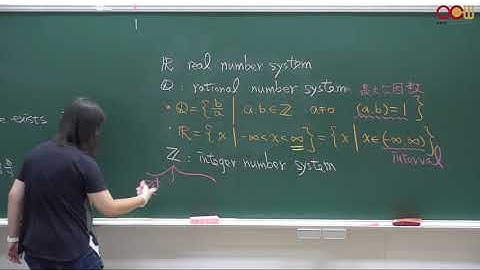 ℝ real number system
ℚ : rational number system 最大公因數
• ℚ = { b/a | a, b ∈ ℤ a ≠ 0 (a,b) = 1 }
= exists • ℝ = { x | -∞ < x < ∞ } = { x | x ∈ (-∞, ∞) }
interval
ℤ : integer number system